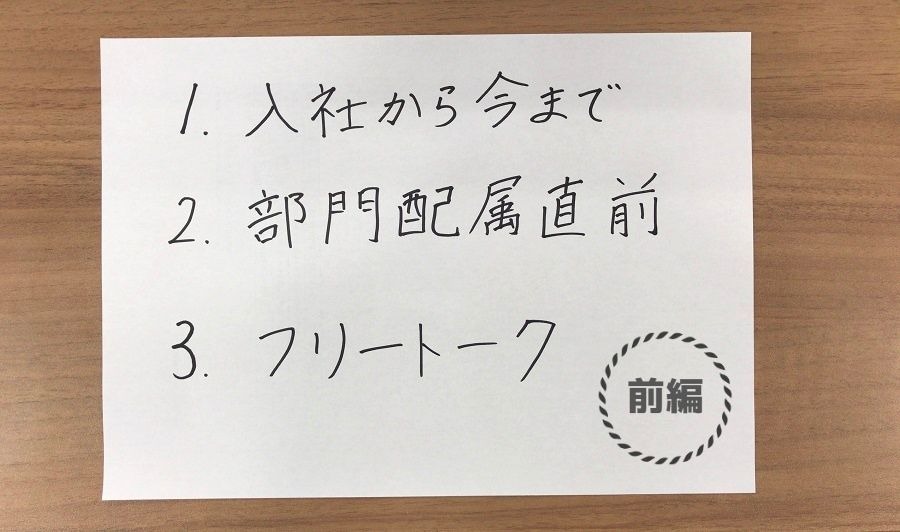 1. 入社から今まで
2. 部門配属直前
3. フリートーク
前編